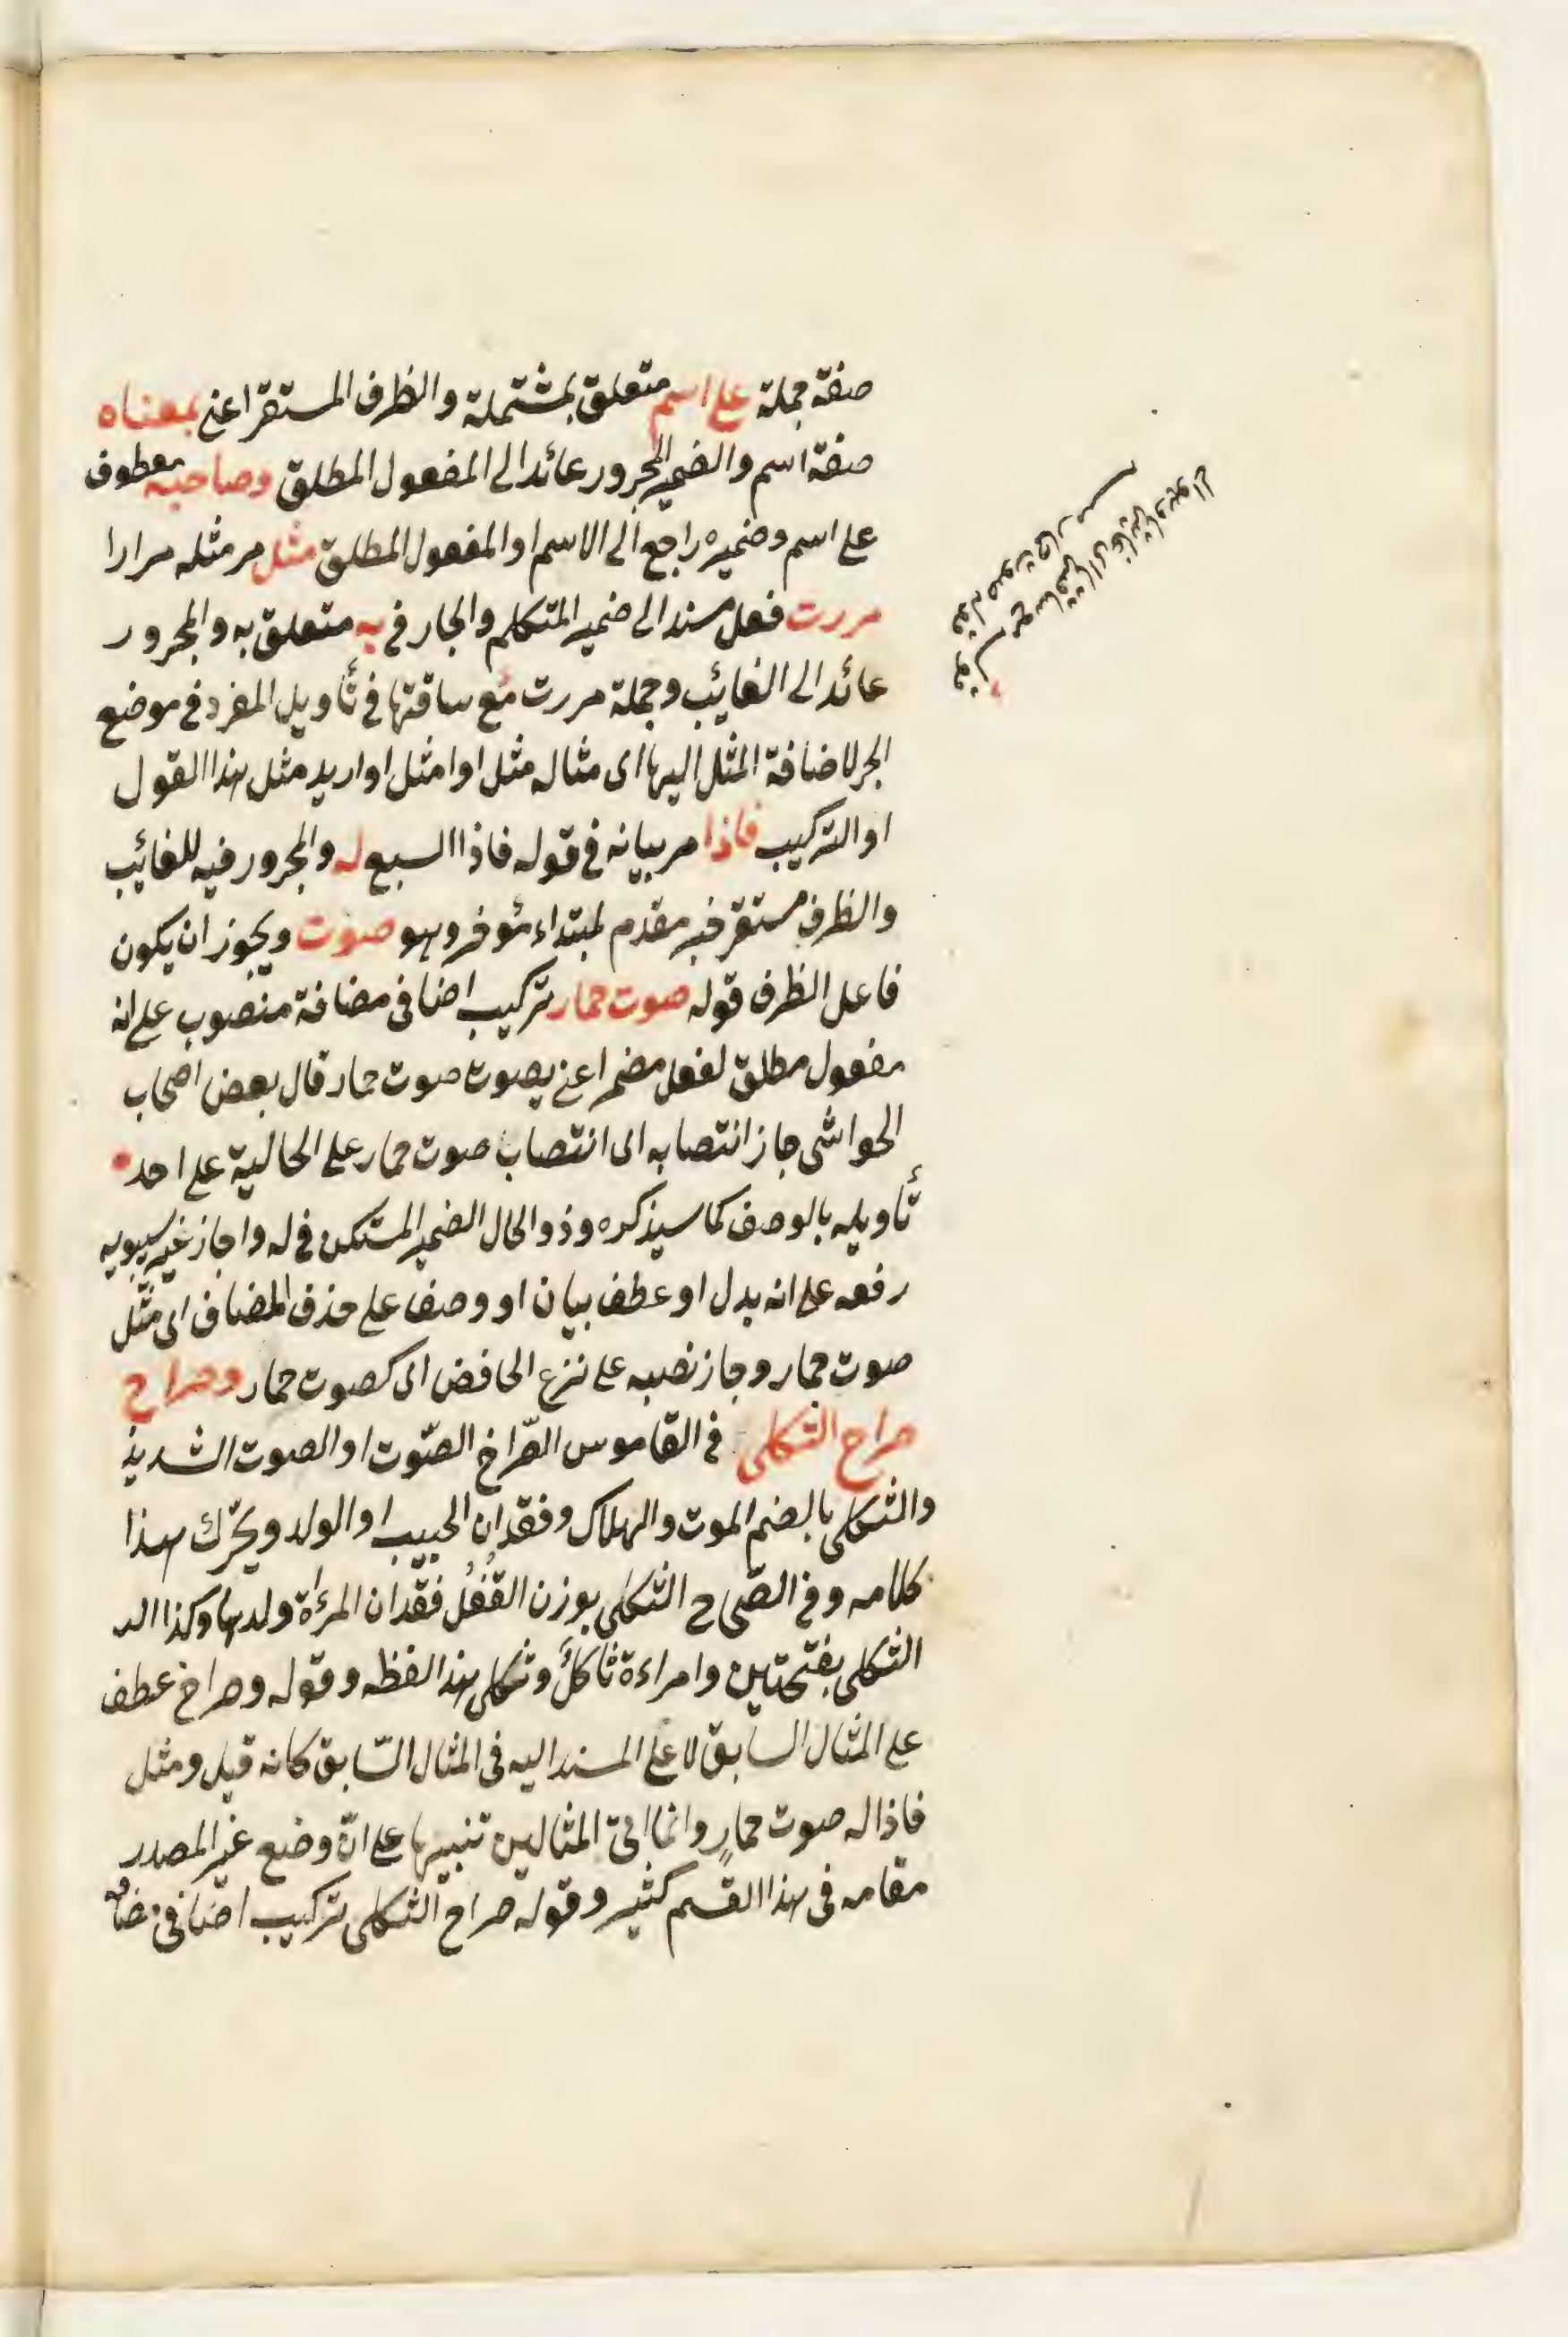 صفة جملة على اسم متعلق بمشتملة والظرف المستقر اعنى بمعناه
صفة اسم والضمير المجرور عائد الى المفعول المطلق وصاحبه معطوف
على اسم وضميره راجع الى الاسم او المفعول المطلق مثل مر مثله مرارا
مررت فعل مسند الى ضمير المتكلم والجار فى به متعلق به والمجرور
عائد الى الغائب وجملة مررت مع ساقتها فى تأويل المفرد فى موضع
الجر لاضافة المثل اليها اى مثاله مثل او امثل او اريد مثل هذا القول
او التركيب فاذا مر بيانه فى قوله فاذا السبع له والمجرور فيه للغائب
والظرف مستقر خبر مقدم لمبتداء مؤخر وهو صوت ويجوز ان يكون
فاعل الظرف قوله صوت حمار تركيب اضافى مضافة منصوب على انه
مفعول مطلق لفعل مضمر اعنى يصوت صوت حمار قال بعض اصحاب
الحواشى جاز انتصابه اى انتصاب صوت حمار على الحالية على احد
تأويله بالوصف كما سيذكره وذو الحال الضمير المستكن فى له واجاز غير سيبويه
رفعه على انه بدل او عطف بيان او وصف على حذف المضاف اى مثل
صوت حمار وجاز نصبه على نزع الخافض اى كصوت حمار وصراخ
صراخ الثكلى فى القاموس الصّراخ الصّوت او الصوت الشديد
والثكلى بالضم الموت والهلاك وفقدان الحبيب او الولد ويحرّك هذا
كلامه وفى الصّحاح الثكلى بوزن القُفُل فقدان المرءاة ولدها وكذا الد
الثكلى بفتحتين وامراءة ثاكل وثكلى هذا لفظه وقوله وصراخ عطف
على المثال السابق لا على المسند اليه فى المثال السّابق كانه قيل ومثل
فاذا له صوت حمارٍ وانما اتى المثالين تنبيها على انّ وضع غير المصدر
مقامه فى هذا القسم كثير وقوله صراخ الثكلى تركيب اضافى